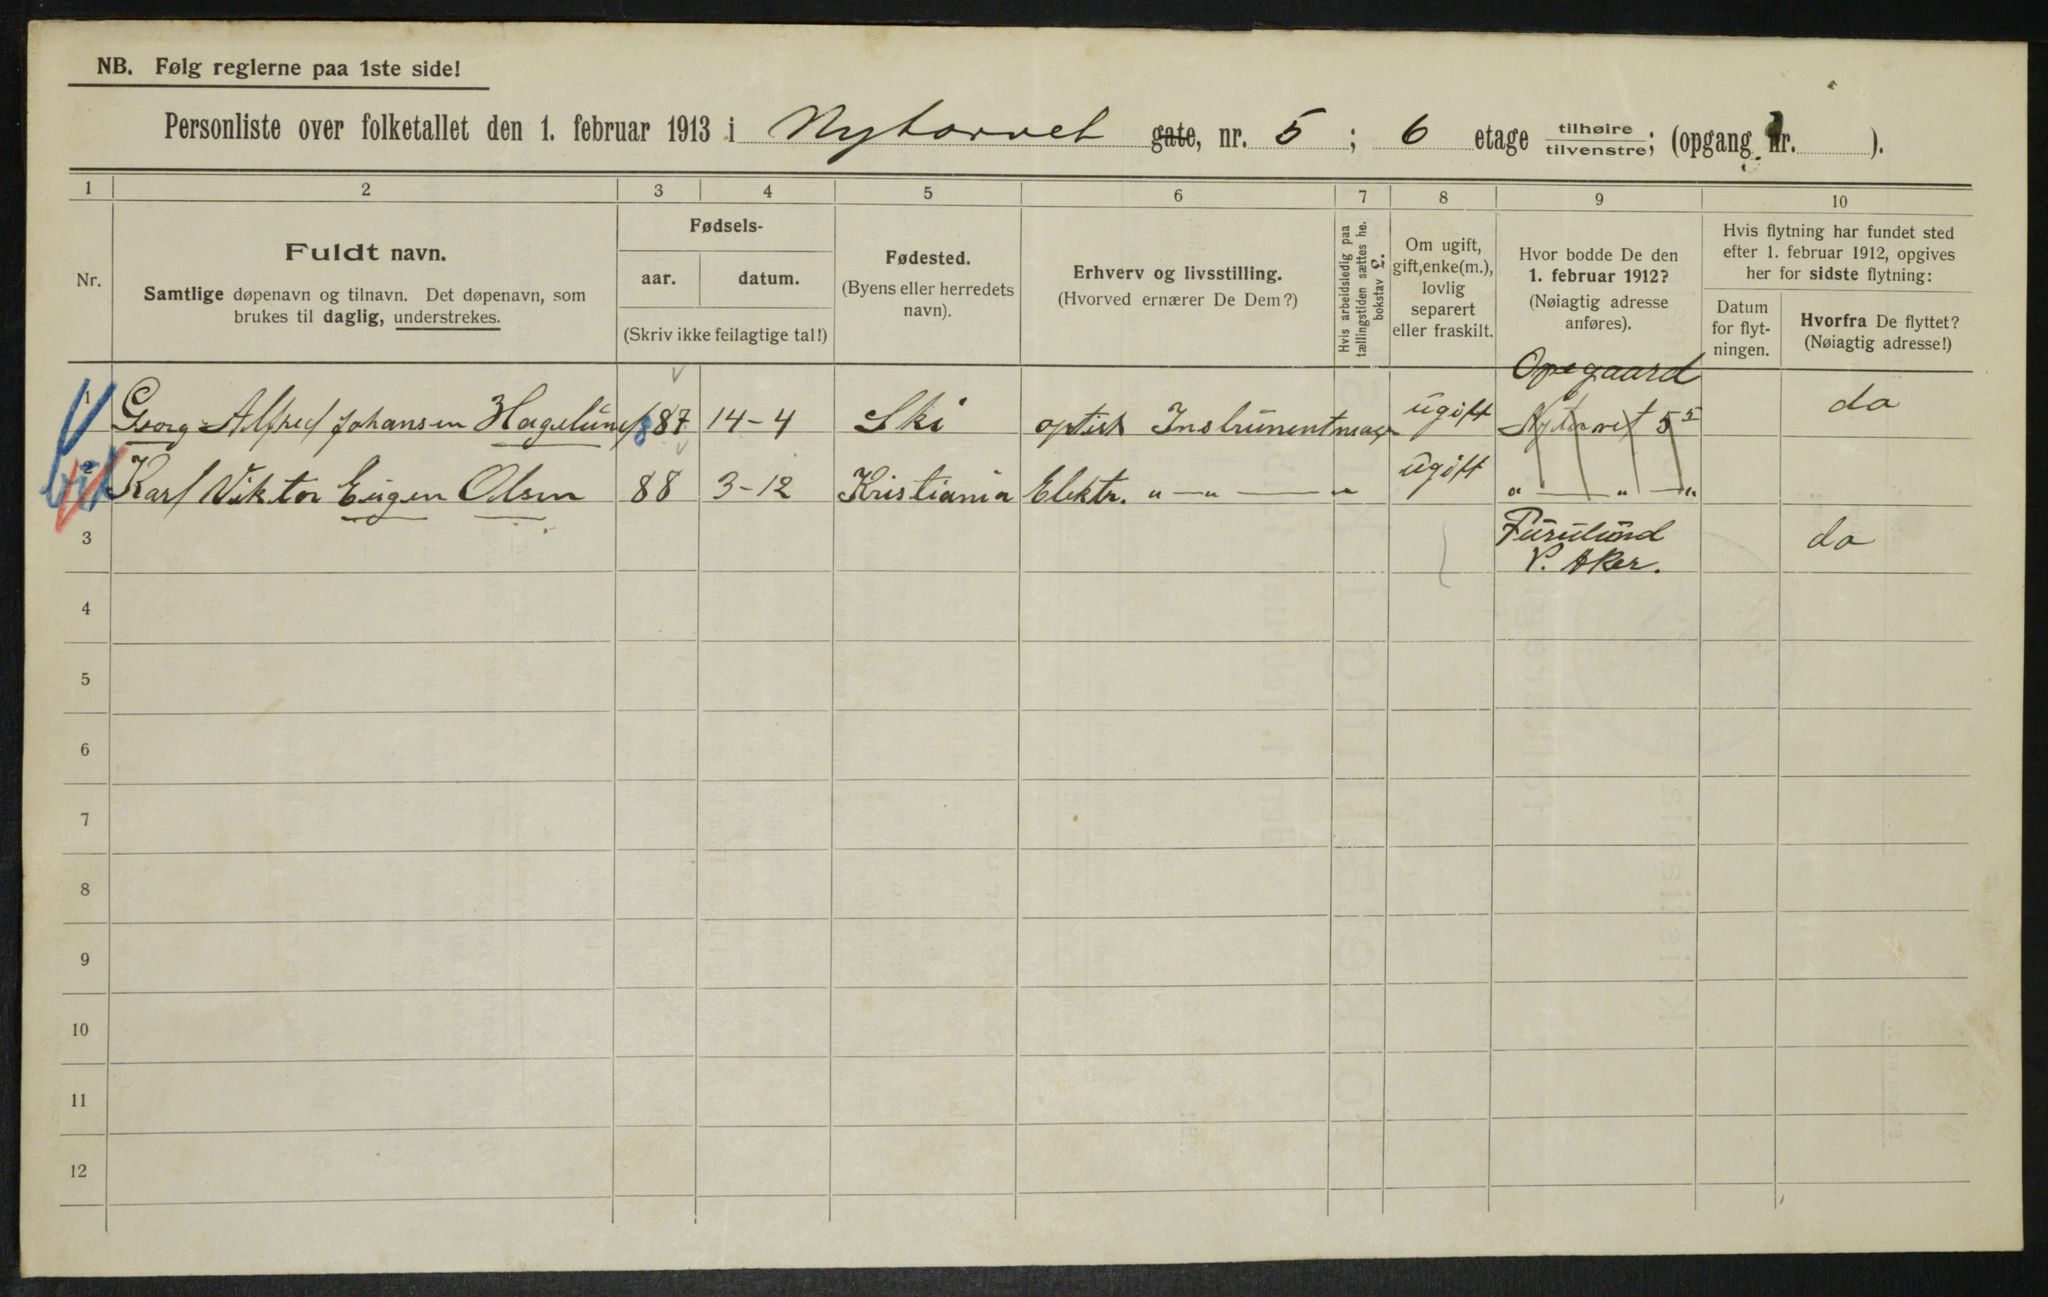 NB. Følg reglerne paa 1ste side!
Personliste over folketallet den 1. februar 1913 i Nytorvet gate, nr. 5 ; 6 etage tilhøire tilvenstre; (opgang nr. ).
1 2 3 4 5 6 7 8 9 10
Nr.
Fuldt navn.
Samtlige døpenavn og tilnavn. Det døpenavn, som
brukes til daglig, understrekes.
Fødsels-
aar. datum.
(Skriv ikke feilagtige tal!)
Fødested.
(Byens eller herredets
navn).
Erhverv og livsstilling.
(Hvorved ernærer De Dem?)
Hvis arbeidsledig paa
tællingstiden sættes he.
bokstav L.
Om ugift,
gift, enke(m.),
lovlig
separert
eller fraskilt.
Hvor bodde De den
1. februar 1912?
(Nøiagtig adresse
anføres).
Hvis flytning har fundet sted
efter 1. februar 1912, opgives
her for sidste flytning:
Datum
for flyt-
ningen.
Hvorfra De flyttet?
(Nøiagtig adresse!)
Opegaard
1 Georg Alfred Johansen Hagelund 87 14-4 Ski optisk Instrumentmager ugift Nytorvet 5 5 do
2 Karl Viktor Eugen Olsen 88 3-12 Kristiania Elektr. " — " — " ugift " — " — "
3 Furulund do
V. Aker.
4
5
6
7
8
9
10
11
12